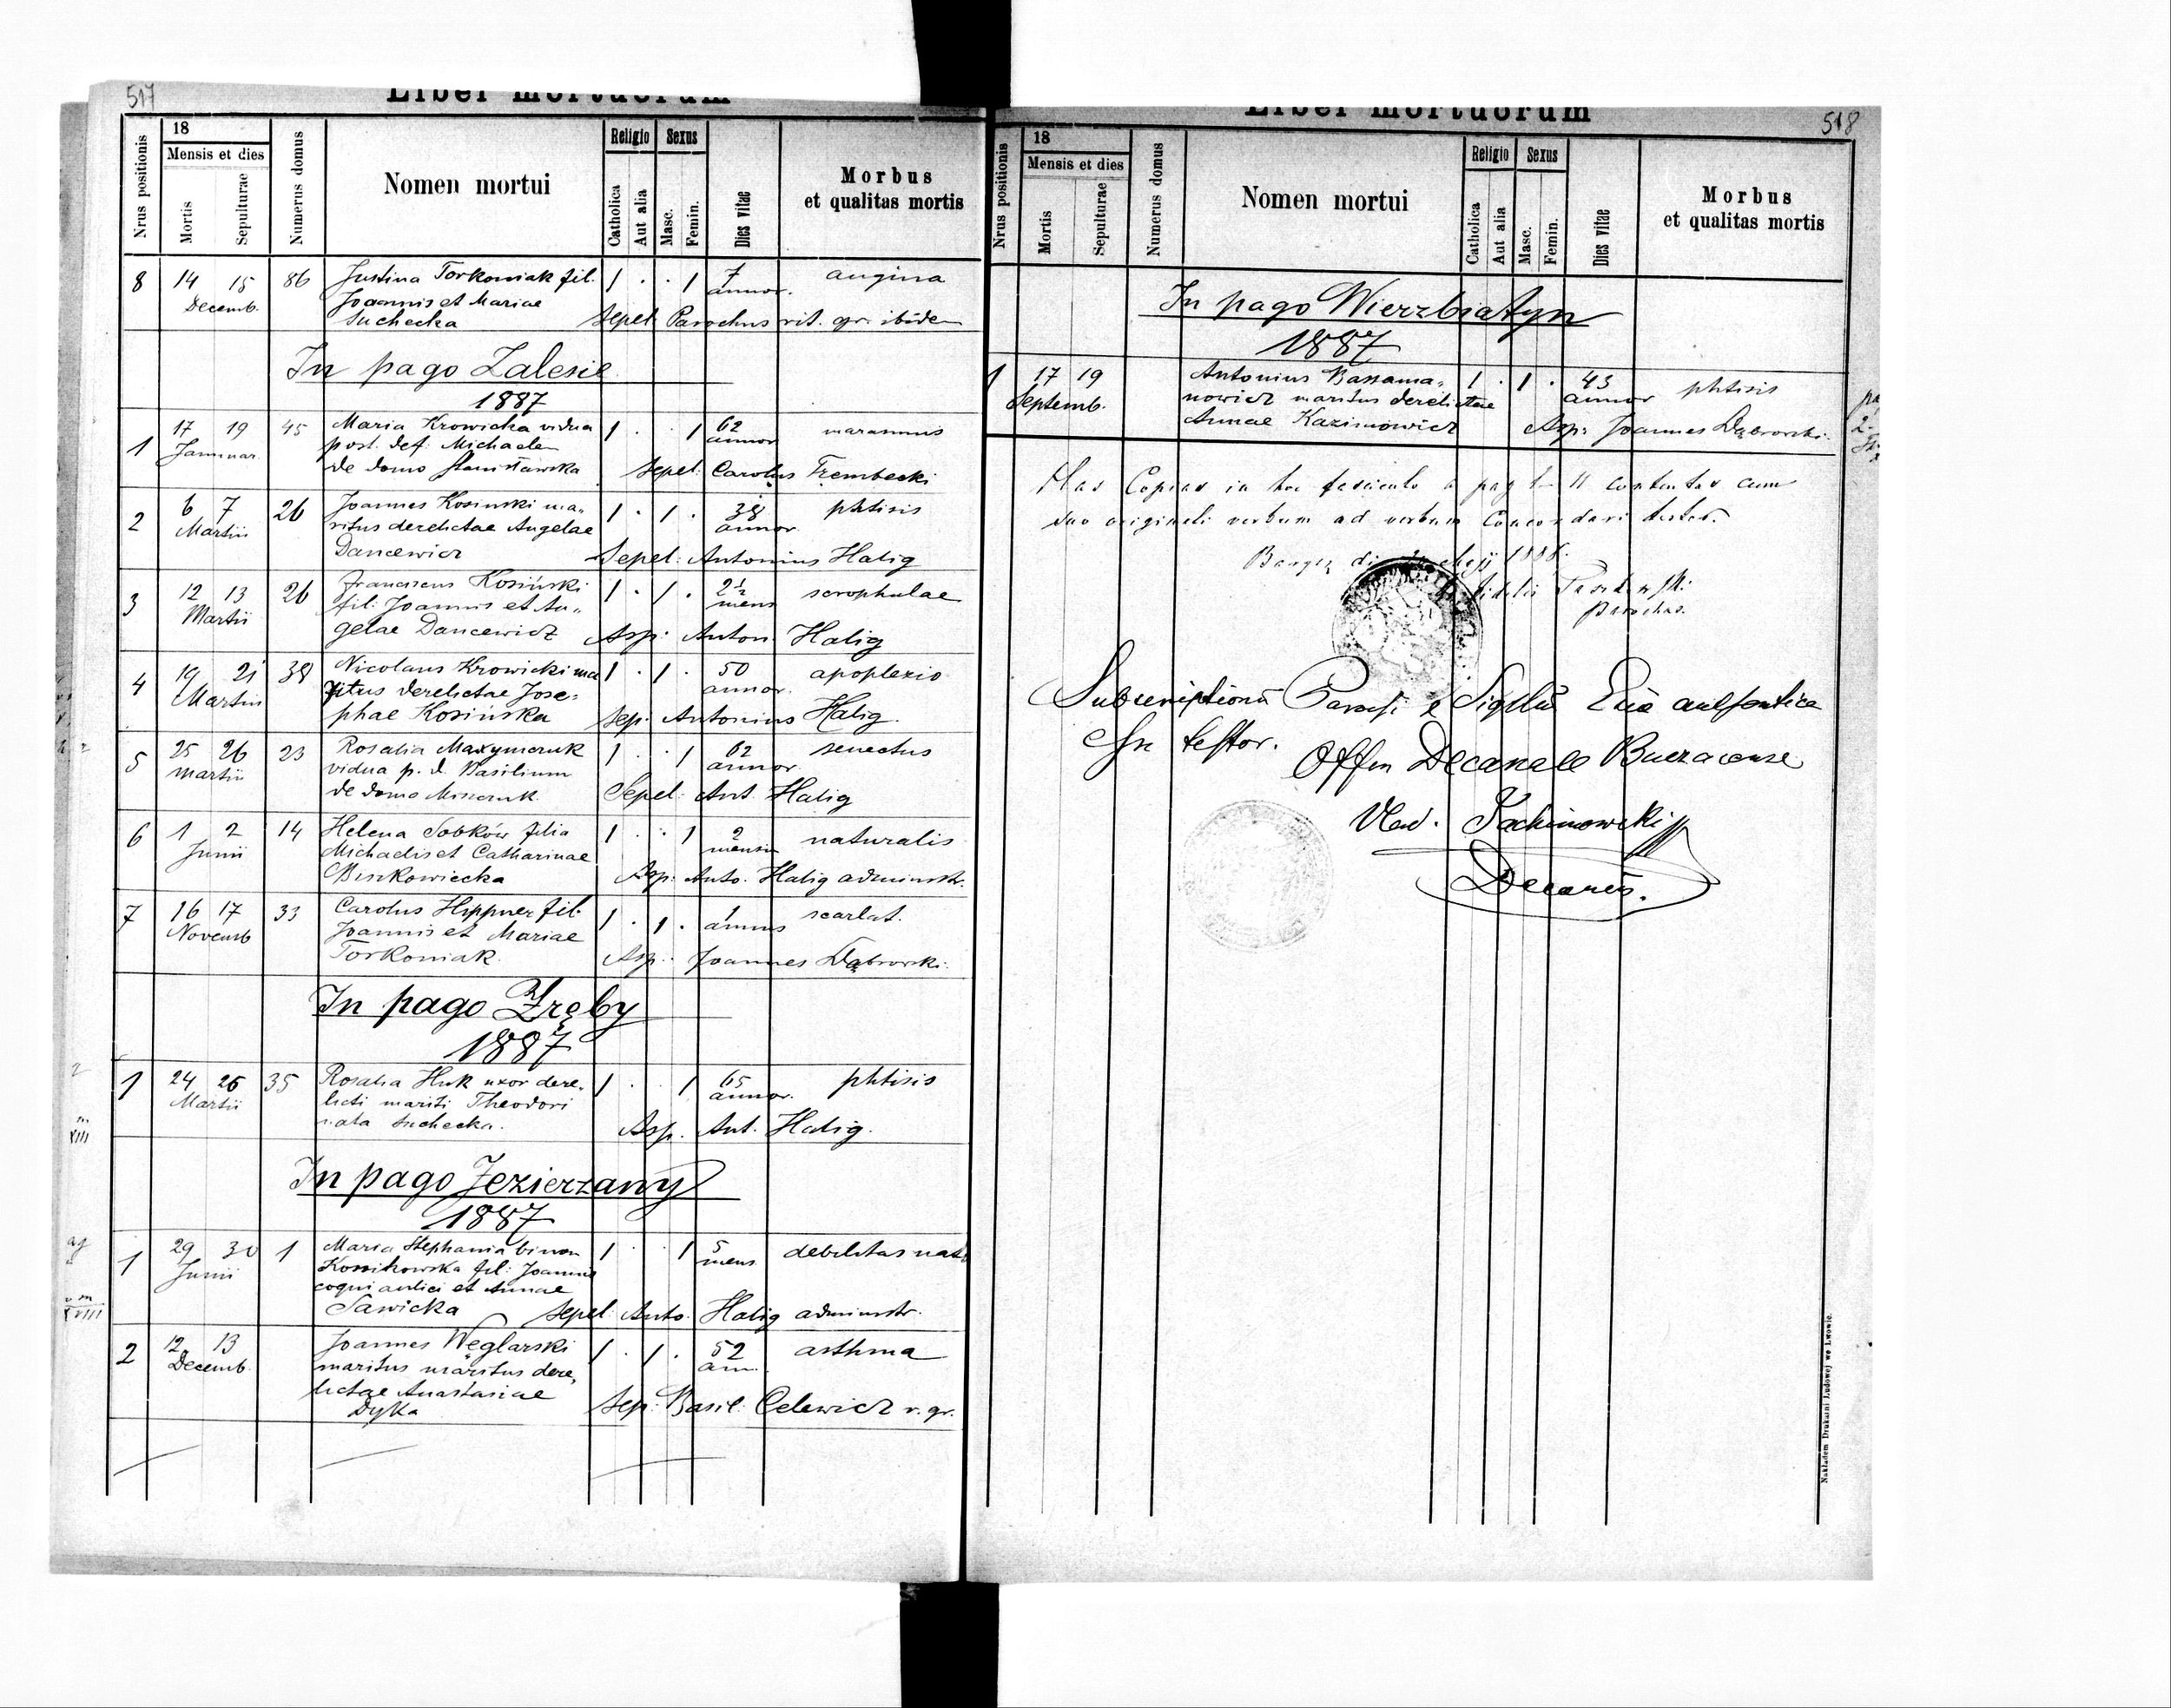 517
Liber mortuorum
Nrus positionis
18
Mensis et dies
Mortis
Sepulturae
Numerus domus
Nomen mortui
Religio
Catholica
Aut alia
Sexus
Masc.
Femin.
Dies vitae
Morbus
et qualitas mortis
8 14 15 86 Justina Torkoniak fil. 1 . . 1 7 angina
Decemb. Joannis et Mariae annor.
Suchecka Sepel Parochus rit. gr. ibidem
In pago Zalesie
1887
1 17 19 45 Maria Krowicka vidua 1 . . 1 62 marasmus
Januar. post. def. Michaelem annor
de domo Stanisławska Sepel. Carolus Trembecki
2 6 7 26 Joannes Kosinski ma„ 1 . 1 . 38 phtisis
Martii ritus derelictae Angelae annor.
Dancewicz Sepel: Antonius Halig
3 12 13 26 Franciscus Kosiński 1 . 1 . 2½ scrophulae
Martii fil: Joannis et An„ mens
gelae Dancewicz Asp: Anton. Halig
4 19 21 38 Nicolaus Krowicki ma 1 . 1 . 50 apoplexio
Martii ritus derelictae Jose„ annor.
phae Kosińska Sep: Antonius Halig.
5 25 26 23 Rosalia Maxymczuk 1 . . 1 62 senectus
Martii vidua p. d. Basilium annor
de domo Sepel: Ant. Halig
6 1 2 14 Helena Sobków filia 1 . . 1 2 naturalis
Junii Michaelis et Catharinae mensium
Binkowiecka Asp: Anto. Halig administr.
7 16 17 33 Carolus Hippner fil. 1 . 1 . 1 scarlat.
Novemb Joannis et Mariae annus
Torkoniak. Asp: Joannes Dąbrowski.
In pago Zręby
1887
1 24 26 35 Rosalia Huk uxor dere„ 1 . . 1 65 phtisis
Martii licti mariti Theodori annor.
nata Suchecka. Asp. Ant. Halig.
In pago Jezierzany
1887
1 29 30 1 Maria Stephania binom 1 . . 1 5 debilitas nat.
Junii fil: Joannis mens
coqui aulici et Annae
Sawicka Sepel. Anto. Halig administr.
2 12 13 Joannes Węglarski 1 . 1 . 52 asthma
Decemb. maritus maritus dere„ ann.
lictae Anastasiae
Dyka Sep: Basil: Celewicz r. gr.
518
Liber mortuorum
Nrus positionis
18
Mensis et dies
Mortis
Sepulturae
Numerus domus
Nomen mortui
Religio
Catholica
Aut alia
Sexus
Masc.
Femin.
Dies vitae
Morbus
et qualitas mortis
In pago Wierzbiatyn
1887
1 17 19 Antonius Bassama„ 1 . 1 . 43 phtisis
Septemb. nowicz maritus derelictae annor
Annae Kazimowicz Asp: Joannes Dąbrowski.
Has Copias in hoc fasciculo a pag 1 - 11 contentas cum
suo originali verbum ad verbum Concordari testor.
1888.
Parochus.
Subscriptionem Parochi et Sigillum Eccl authentica
esse testor.
Offm Decanale Buczacense
Vlad. Jachimowski
Decanus.
Nakładem Drukarni Ludowej we Lwowie.